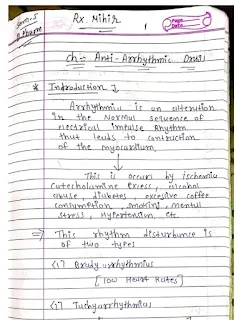 Sem-5
B.Pharm
Rx. Mihir
Page
Date
ch:- Anti-Arrhythmic Drug
* Introduction ↓
Arrhythmia is an alteration
in the Normal sequence of
electrical impulse Rhythm
that leads to contraction
of the myocardium
This is occurs by ischemia
Catecholamine Excess, alcohol
abuse, diabetes, excessive coffee
consumption, smoking, mental
stress, Hypertention, etc
⇒ This rhythm disturbance is
of two types
(i) Brady arrhythmias
[low Heart Rates]
(i) Tachyarrhythmias